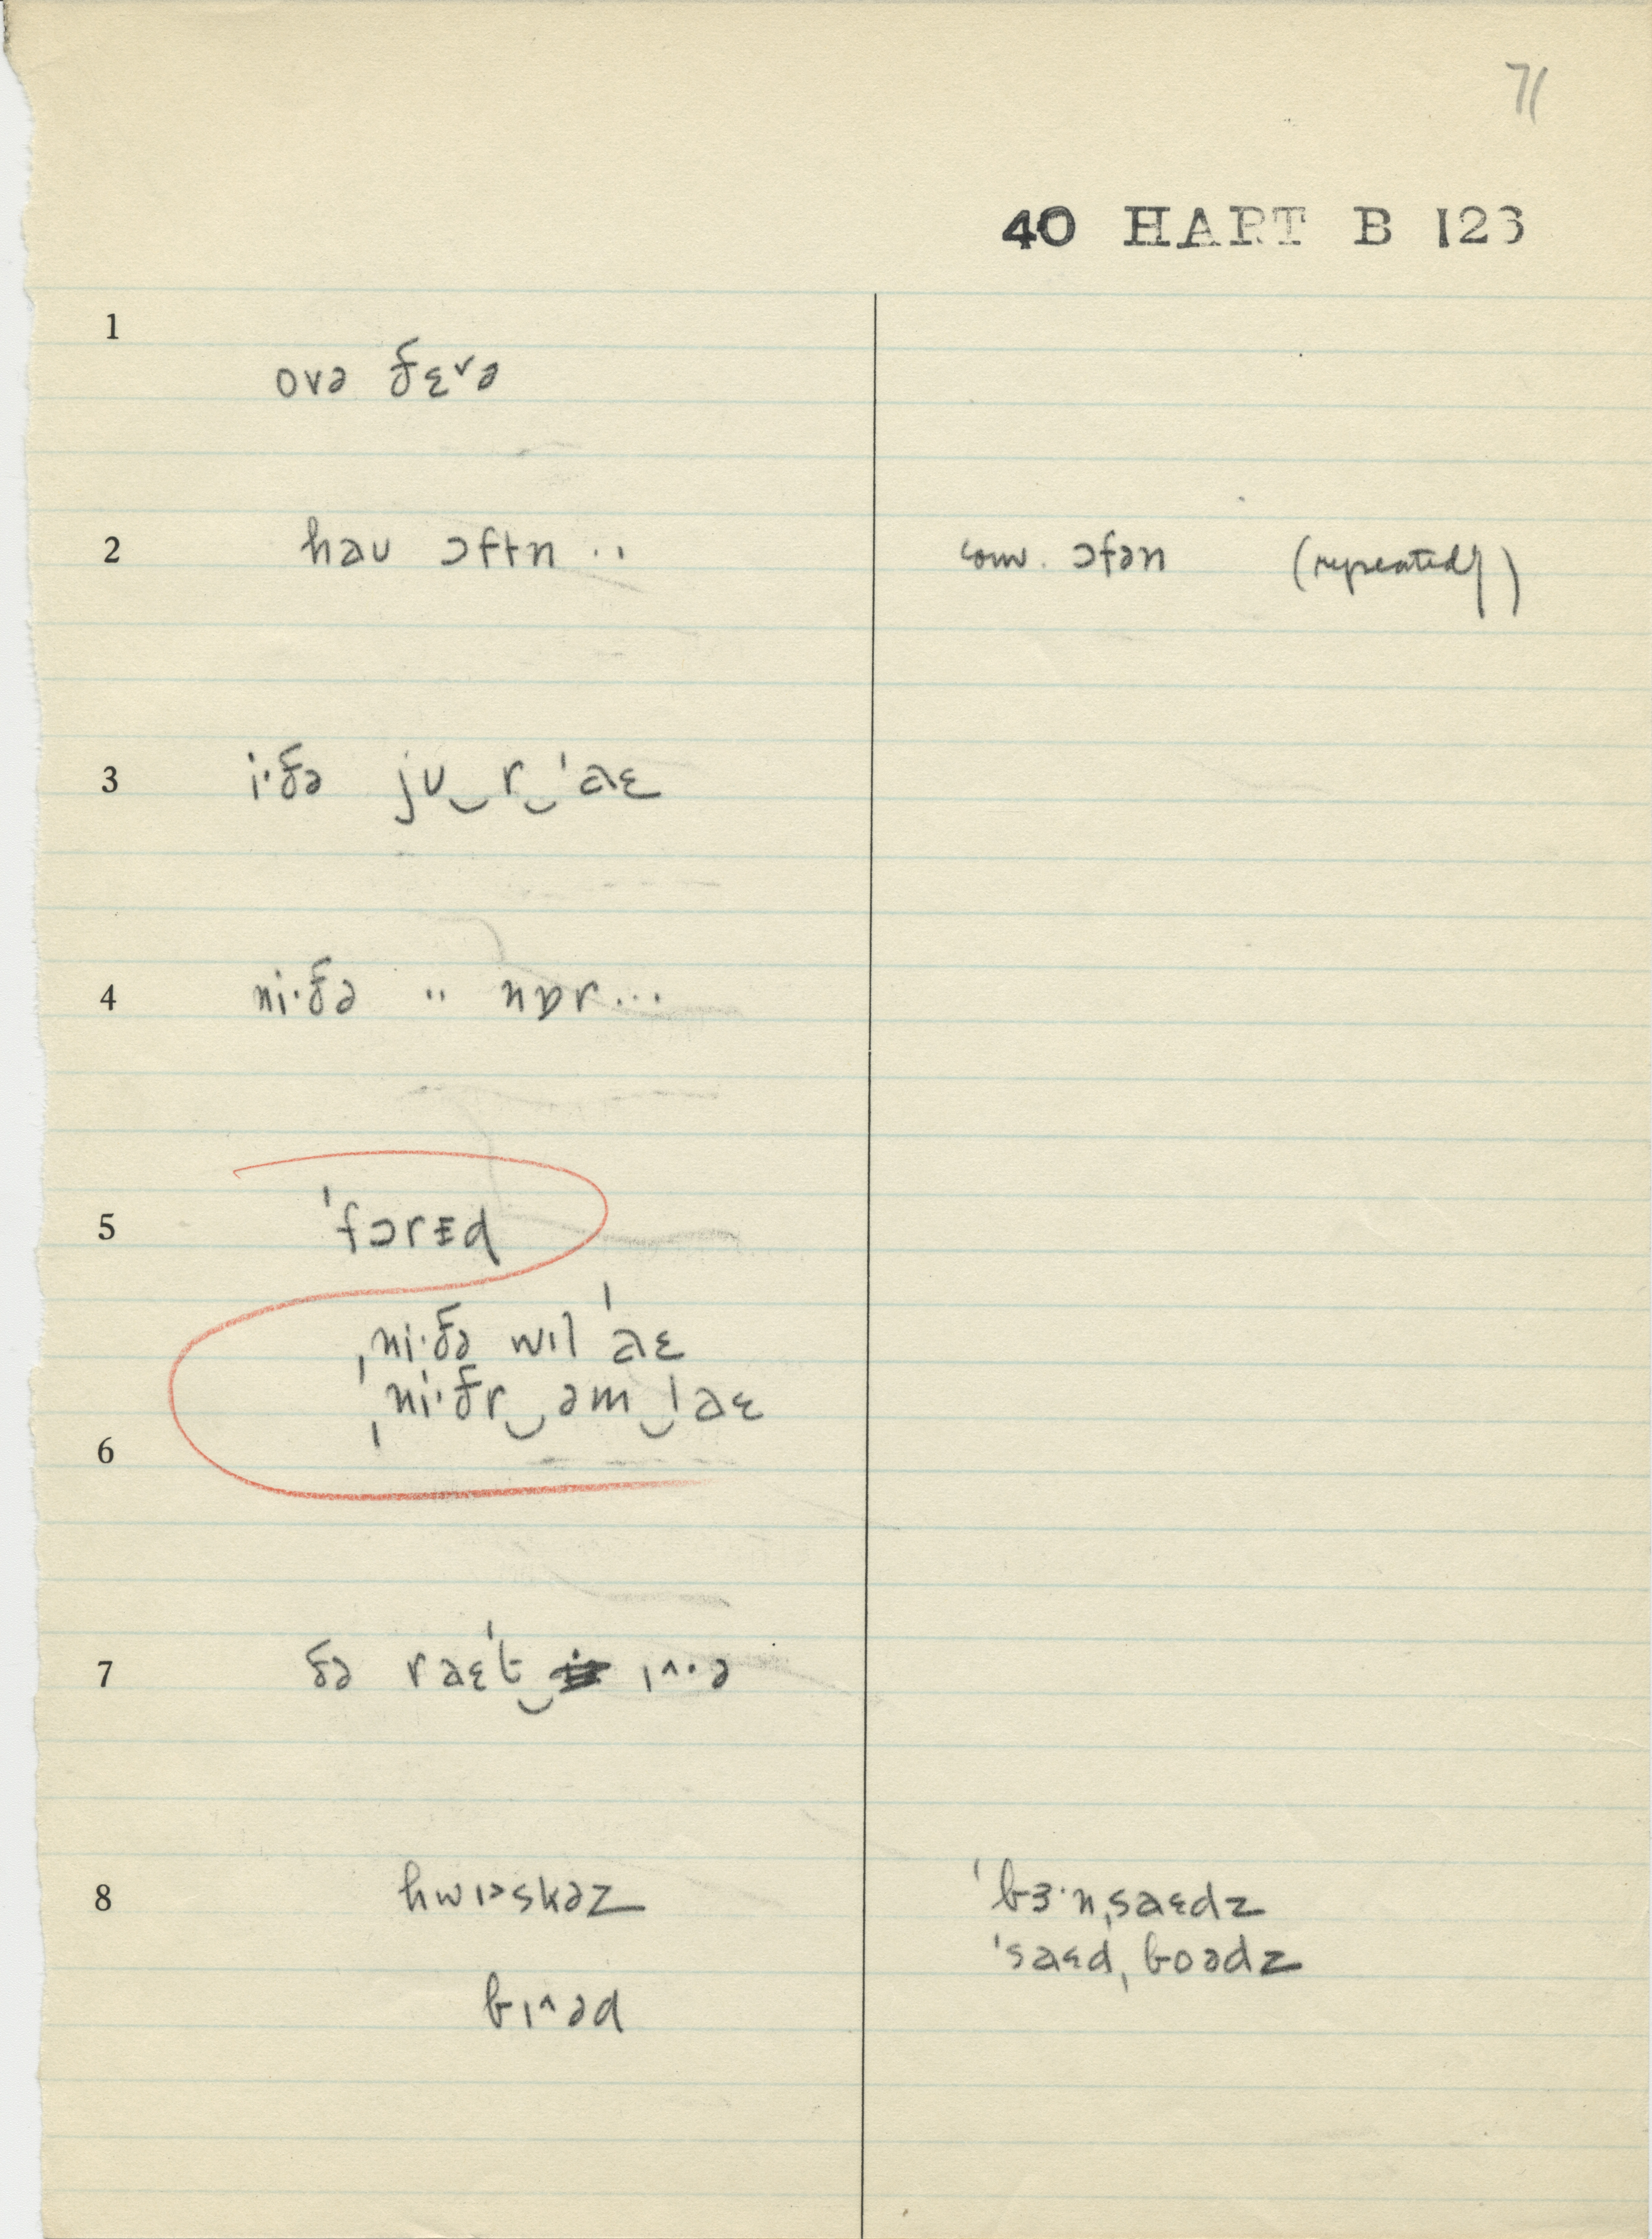 71
40 HART B 123
1
ovə ðɛ˅ə
2 haʊ ɔftɨn .. conv. ɔfən (repeatedly)
3 i·ðə jʊ‿r‿ˈaɛ
4 ni·ðə .. nɒr ...
5 ˈfɔrɪ̵d
ˌni·ðə wɪl ˈaɛ
ˌni·ðr‿əm‿ˈaɛ
6
7 ðə raɛˈt‿ ɪ˄·ə
8 hwɪ˃skəz ˈbɜ·nˌsaɛdz
ˈsaɛdˌboədz
bɪ˄əd